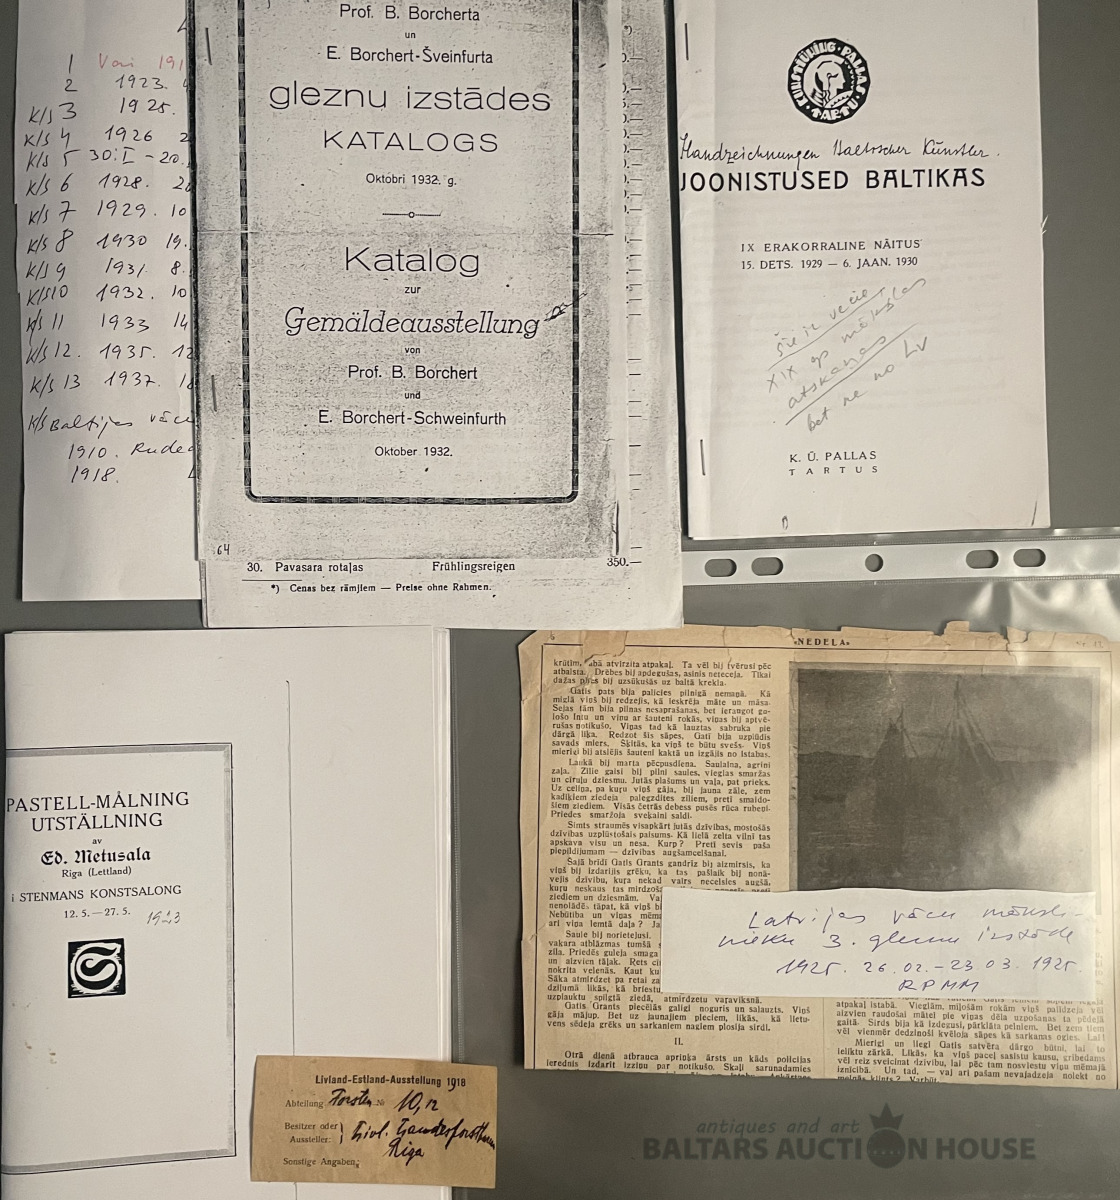 1 Vāci 191
2 1923. 4
K/S 3 1925.
K/S 4 1926 2
K/S 5 30.I - 20.
K/S 6 1928. 20
K/S 7 1929. 10
K/S 8 1930 19.
K/S 9 1931. 8.
K/S 10 1932. 10
K/S 11 1933 14
K/S 12. 1935. 12
K/S 13 1937.
K/S Baltijas vācu
1910. Rude
1918.
Prof. B. Borcherta
un
E. Borchert-Šveinfurta
gleznu izstādes
KATALOGS
Oktobrī 1932. g.
Katalog
zur
Gemäldeausstellung
von
Prof. B. Borchert
und
E. Borchert-Schweinfurth
Oktober 1932.
64
30. Pavasara rotaļas Frühlingsreigen 350.—
*) Cenas bez rāmjiem — Preise ohne Rahmen.
KUNSTIÜHING·PALLAS·TARTU·
Handzeichnungen Baltischer Künstler.
JOONISTUSED BALTIKAS
IX ERAKORRALINE NÄITUS
15. DETS. 1929 — 6. JAAN. 1930
Šie ir vecie
XIX gs māksl
atskaņas
bet ne no LV
K. Ü. PALLAS
TARTUS
PASTELL-MÅLNING
UTSTÄLLNING
av
Ed. Metusala
Riga (Lettland)
i STENMANS KONSTSALONG
12.5.—27.5. 1923
Livland-Estland-Ausstellung 1918
Abteilung Forsten № 10,12
Besitzer oder
Aussteller: } Livl. Landesforst
Riga
Sonstige Angaben:
6 «NEDĒĻA» Nr. 12
krūtīm, abā atvirzīta atpakaļ. Ta vēl bij tvērusi pēc
atbalsta. Drēbes bij apdegušas, asinis netecēja. Tikai
dažas pilēs bij uzsūkušās uz baltā krekla.
Gatis pats bija palicies pilnīgā nemaņā. Kā
miglā viņš bij redzējis, kā ieskrēja māte un māsa.
Sejas tām bija pilnas nesaprašanas, bet ieraugot gu-
ļošo Intu un viņu ar šauteni rokās, viņas bij aptvē-
rušas notikušo. Viņas tad kā lauztas sabruka pie
dārgā līķa. Redzot šīs sāpes, Gatī bija uzplūdis
savāds miers. Šķitās, ka viņš te būtu svešs. Viņš
mierīgi bij atslējis šauteni kaktā un izgājis no istabas.
Laukā bij marta pēcpusdiena. Saulaina, agrīni
zaļa. Zilie gaisi bij pilni saules, vieglas smaržas
un cīruļu dziesmu. Jutās plašums un vaļa, pat prieks.
Uz celiņa, pa kuru viņš gāja, bij jauna zāle, zem
kadiķiem ziedēja palēgzdītes ziliem, pretī smaido-
šiem ziediem. Visās četrās debess pusēs rūca rubeņi.
Priedes smaržoja sveķaini saldi.
Simts straumēs visapkārt jutās dzīvības, mostošās
dzīvības uzplūstošais palsums. Kā lielā zelta vilnī tas
apskāva visu un nesa. Kurp? Pretī sevis paša
piepildījumam — dzīvības augšāmcelšanai.
Šajā brīdī Gatis Grants gandrīz bij aizmirsis, ka
viņš bij izdarījis grēku, ka tas pašlaik bij nonā-
vējis dzīvību, kura nekad vairs necelsies augšā,
kuru neskaus tas mirdzoš
ziediem un dziesmām. Va
nenolādēs tāpat, kā viņš bi
Nebūtība un viņas mēm
arī viņa lemtā daļa? Ja
Saule bij norietējusi.
vakara atblāzmas tumšā s
zilā. Priedēs guļēja smaga
un aizvien tālāk. Rets ci
nokrita velēnās. Kaut ku
Sāka atmirdzēt pa retai za
dziļumā likās, kā briestu,
uzplauktu spilgtā ziedā, atmirdzētu varavīksnā.
Gatis Grants piecēlās galīgi noguris un salauzts. Viņš
gāja mājup. Bet uz jaunajiem pleciem, likās, kā lietu-
vens sēdēja grēks un sarkaniem nagiem plosīja sirdi.
II.
Otrā dienā atbrauca apriņķa ārsts un kāds policijas
ierēdnis izdarīt izziņu par notikušo. Skaļi sarunādamies
Latvijas vācu māksli-
nieku 3. gleznu izstāde
1925. 26.02.-23 03. 1925.
RPMM
atpakaļ istabā. Vieglām, mīļošām rokām viņš palīdzēja vēl
aizvien raudošai mātei pie viņas dēla uzpošanas ta pēdējā
gaitā. Sirds bija kā izdegusi, pārklāta pelniem. Bet zem tiem
vēl vienmēr dedzinoši kvēloja sāpes kā sarkanas ogles.
Mierīgi un liegi Gatis satvēra dārgo būtni, lai to
ieliktu zārkā. Likās, ka viņš paceļ sasistu kausu, gribēdams
vēl reiz sveicinat dzīvību, lai pēc tam nosviestu viņu mēmajā
iznīcībā. Un tad, — vaj arī pašam nevajadzēja nolekt no
antiques and art
BALTARS AUCTION HOUSE